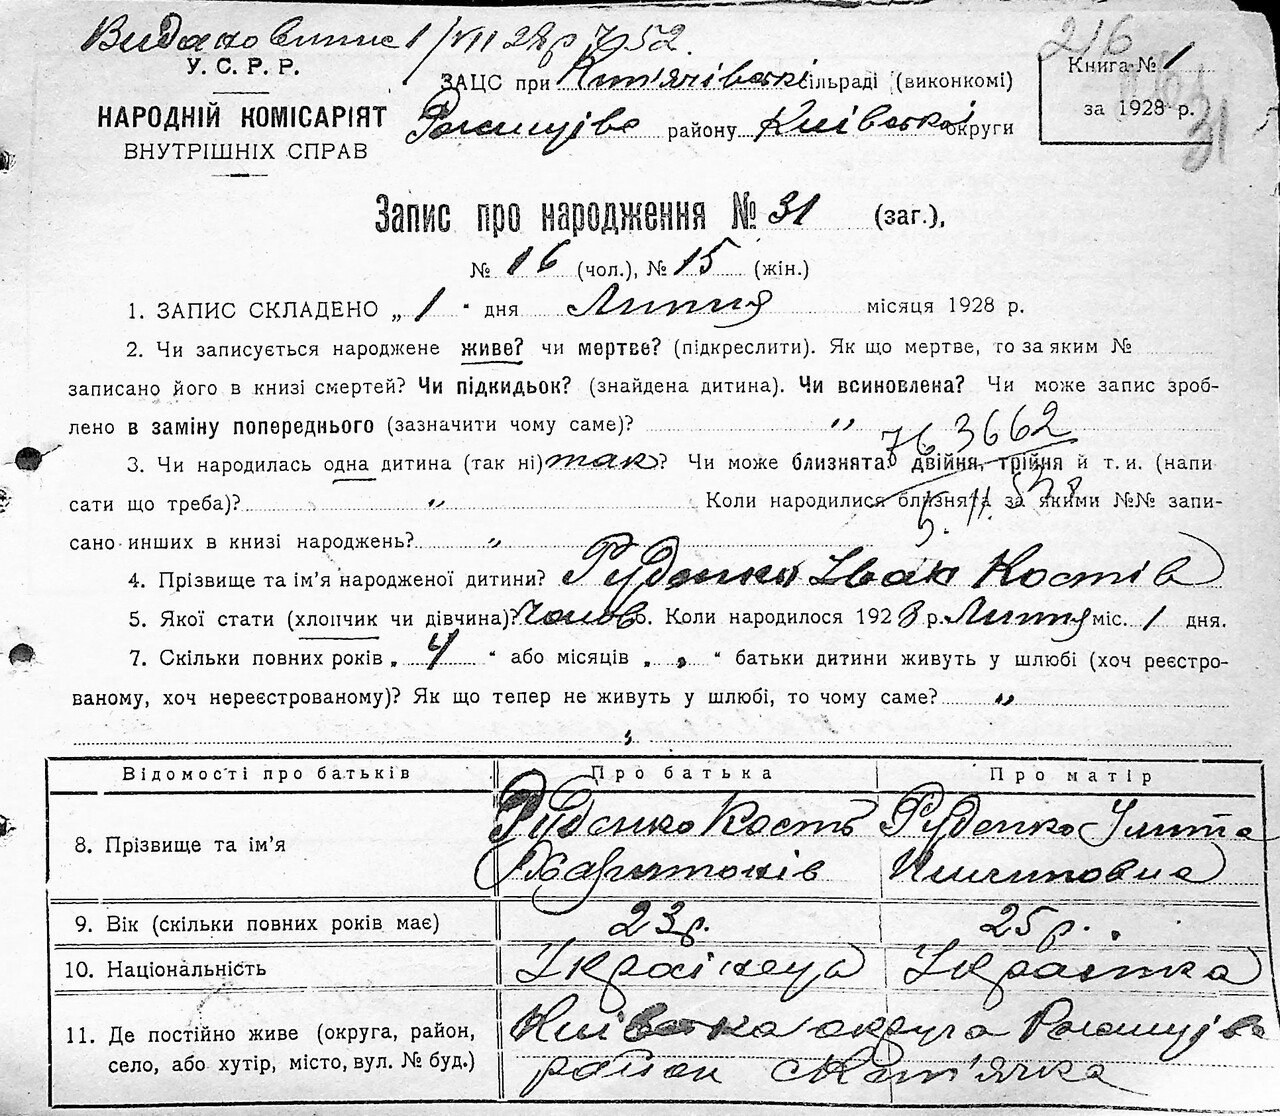 Видано випис 1/VII 28 р № 52.
У. С. Р. Р.
НАРОДНІЙ КОМІСАРІЯТ
ВНУТРІШНІХ СПРАВ
ЗАЦС при сільраді (виконкомі)
району Київської округи
216
Книга № 1
за 1928 р.
31
Запис про народження № 31 (заг.),
№ 16 (чол.), № 15 (жін.)
1. ЗАПИС СКЛАДЕНО „ 1 " дня Липня місяця 1928 р.
2. Чи записується народжене живе? чи мертве? (підкреслити). Як що мертве, то за яким №
записано його в книзі смертей? Чи підкидьок? (знайдена дитина). Чи всиновлена? Чи може запис зроб-
лено в заміну попереднього (зазначити чому саме)? "
763662
3. Чи народилась одна дитина (так ні) так? Чи може близнята двійня, трійня й т. и. (напи
сати що треба)? " Коли народилися близнята за якими №№ запи-
сано инших в книзі народжень? "
4. Прізвище та ім'я народженої дитини? Руденко Іван Костів
5. Якої стати (хлопчик чи дівчина)? Чолов. Коли народилося 1928 р. Липня міс. 1 дня.
7. Скільки повних років „ 4 " або місяців „ „ " батьки дитини живуть у шлюбі (хоч реєстро-
ваному, хоч нереєстрованому)? Як що тепер не живуть у шлюбі, то чому саме? "
Відомості про батьків Про батька Про матір
8. Прізвище та ім'я Руденко Кость Харитонів Руденко Улита
9. Вік (скільки повних років має) 23 р. 25 р.
10. Національність Українець Українка
11. Де постійно живе (округа, район, Київська округа
село, або хутір, місто, вул. № буд.) район